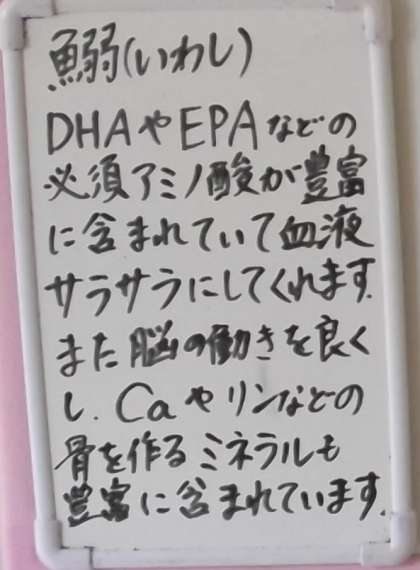 鰯(いわし)
DHAやEPAなどの
必須アミノ酸が豊富
に含まれていて血液
サラサラにしてくれます.
また脳の働きを良く
し、Caやリンなどの
骨を作るミネラルも
豊富に含まれています.